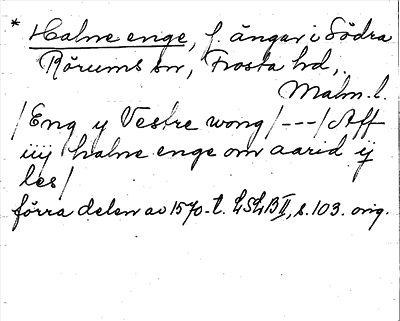 * Halme enge, f. ängar i Södra
Rörums sn, Frosta hd,
Malm. l.
/Eng y Vestre wong/---/Aff
iiij halme enge om aarid ij
les/
förra delen av 1570-t. LSLB II, s. 103. orig.